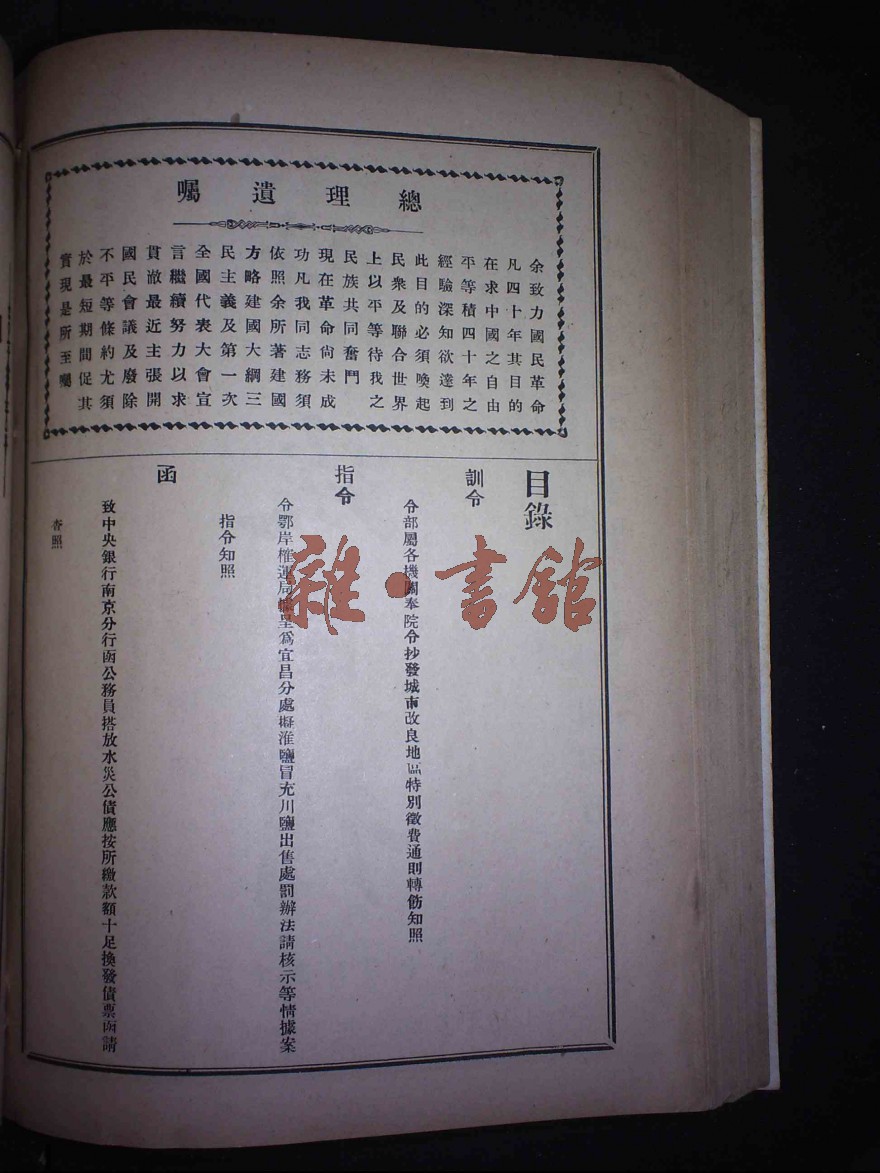 總理遺囑
余致力國民革命
凡四十年其目的
在求中國之自由
平等積四十年之
經驗深知欲達到
此目的必須喚起
民衆及聯合世界
上以平等待我之
民族共同奮鬥
現在革命尚未成
功凡我同志務須
依照余所著建國
方略建國大綱三
民主義及第一次
全國代表大會宣
言繼續努力以求
貫澈最近主張開
國民會議及廢除
不平等條約尤須
於最短期間促其
實現是所至囑
目錄
訓令
令部屬各機關奉院令抄發城市改良地區特別徵費通則轉飭知照
指令
令鄂岸榷運局據呈爲宜昌分處擬淮鹽冒充川鹽出售處罰辦法請核示等情據案
指令知照
函
致中央銀行南京分行函公務員搭放水災公債應按所繳款額十足換發債票函請
查照
雜·書館